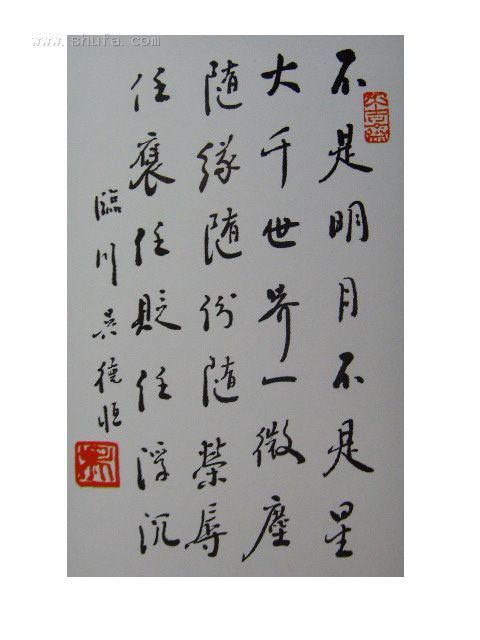 www.shufa.com
不是明月不是星
大千世界一微塵
随緣随份随榮辱
任褒任貶任浮沉
臨川吴德恒